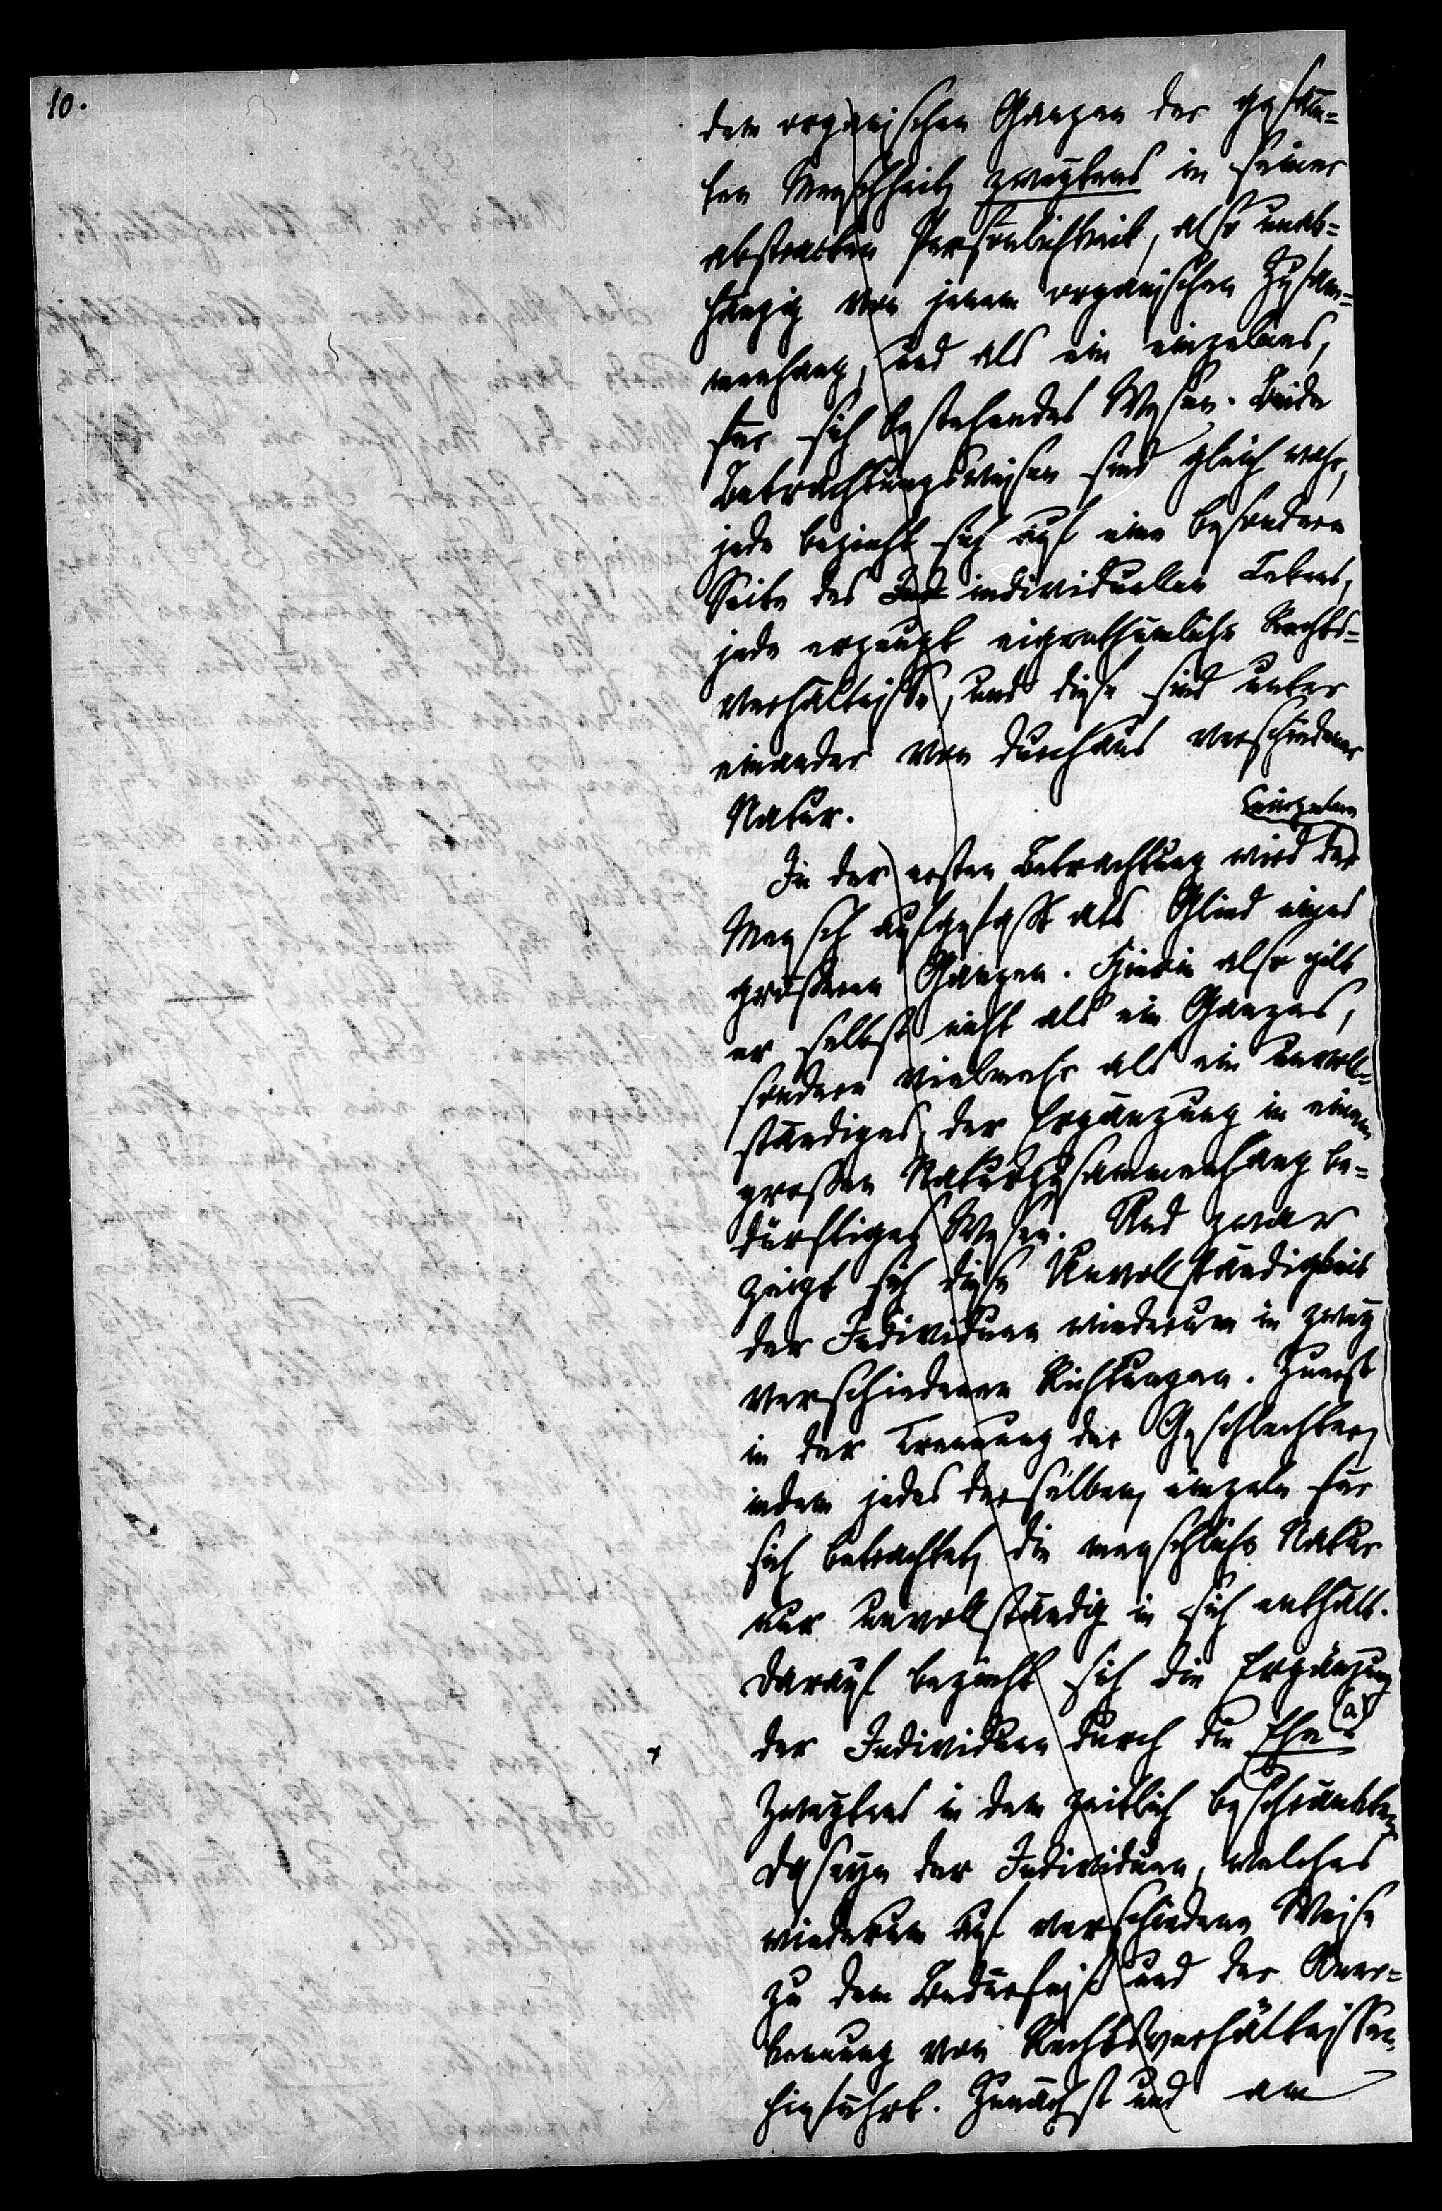 10.
dem organischen Ganzen der gesam-
ten Menschheit, zweytens in seiner
abstracten Persönlichkeit, also unab-
hängig von jenem organischen Zusam-
menhang, und als ein einzelnes,
für sich bestehendes Wesen. Beide
Betrachtungsweisen sind gleich wahr,
jede bezieht sich auf eine besondere
Seite des individuellen Lebens,
jede erzeugt eigenthümliche Rechts-
verhältnisse, und diese sind unter
einander von durchaus verschiedener
Natur.
einzelne
In der ersten Betrachtung wird der
Mensch aufgefaßt als Glied eines
größeren Ganzen. Hierin also gilt
er selbst nicht als ein Ganzes,
sondern vielmehr als ein unvoll-
ständiges, der Ergänzung in einem
großen Naturzusammenhang be-
dürftiges Wesen. Und zwar
zeigt sich diese Unvollständigkeit
der Individuen wiederum in zwey
verschiedenen Richtungen. Zuerst
in der Trennung der Geschlechter,
indem jedes derselben, einzeln für
sich betrachtet, die menschliche Natur
nur unvollständig in sich enthält.
Darauf bezieht sich die Ergänzung
der Individuen durch die Ehe (a).
Zweytens in dem zeitlich beschränkten
Daseyn der Individuen, welches
wiederum auf verschiedene Weise
zu dem Bedürfniß und der Aner-
kennung von Rechtsverhältnissen
hinführt. Zunächst und am